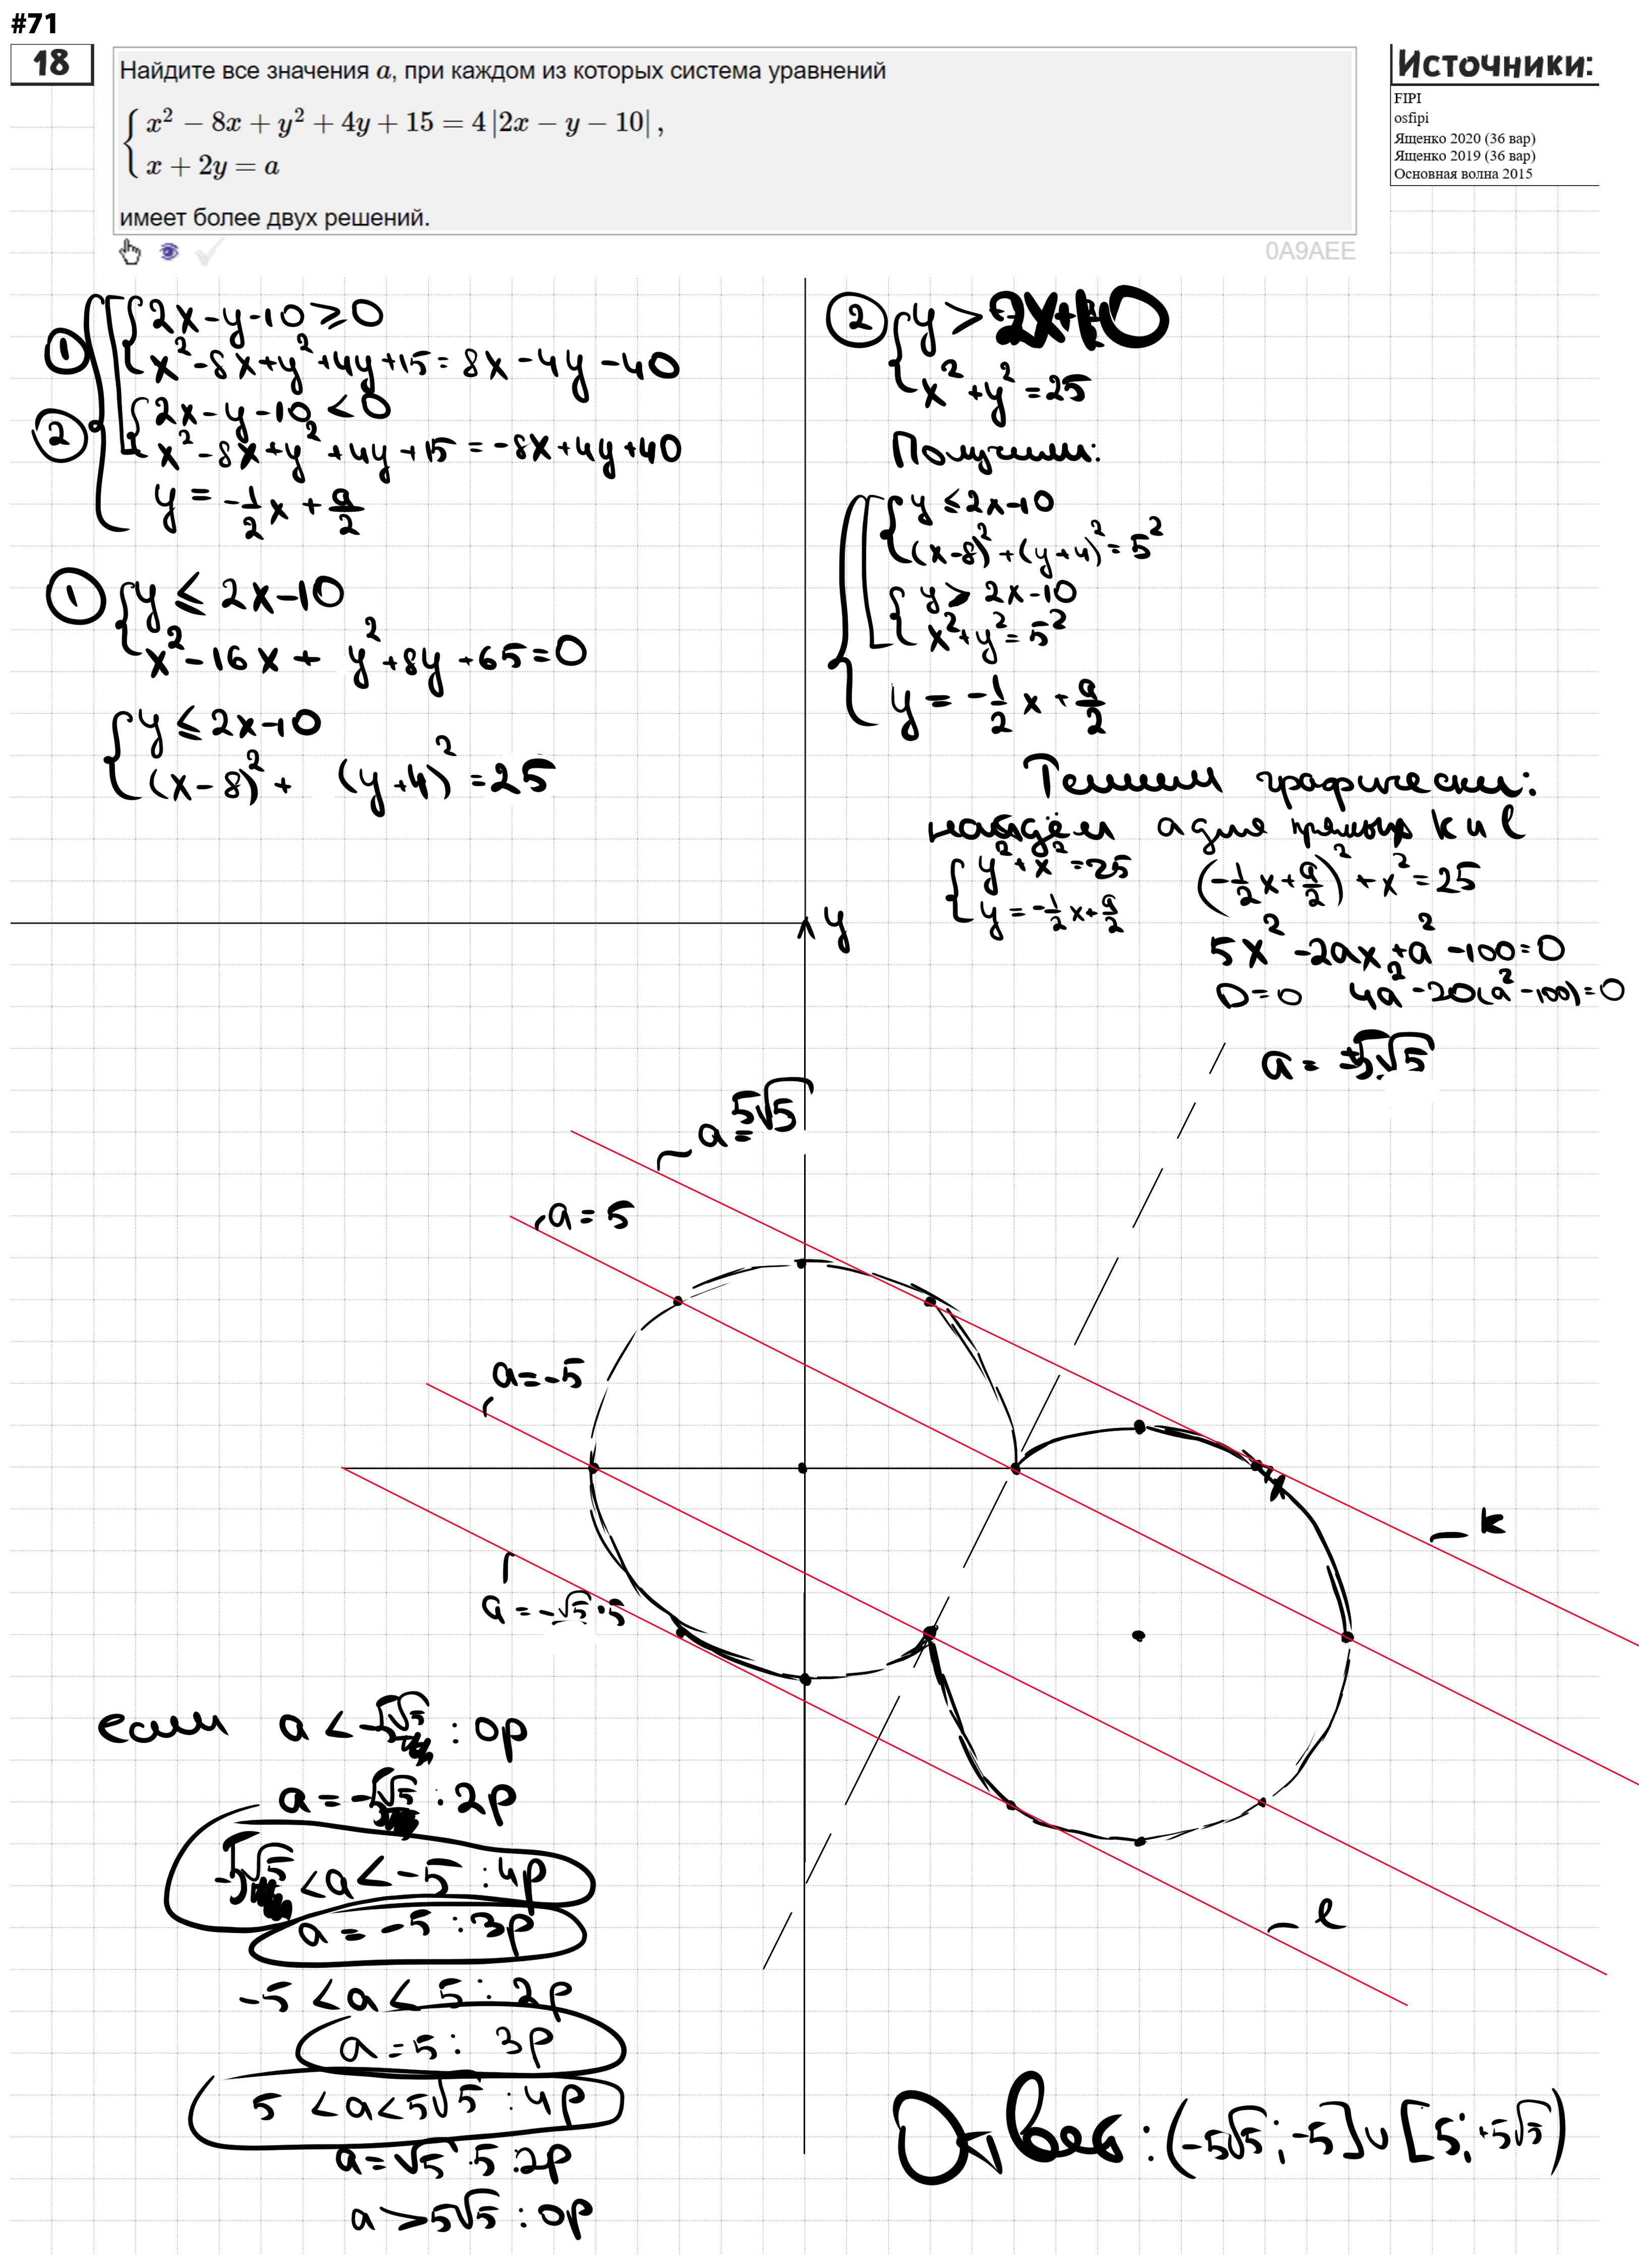 #71
18
Найдите все значения a, при каждом из которых система уравнений
{ x² − 8x + y² + 4y + 15 = 4 |2x − y − 10| ,
x + 2y = a
имеет более двух решений.
0A9AEE
Источники:
FIPI
osfipi
Ященко 2020 (36 вар)
Ященко 2019 (36 вар)
Основная волна 2015
① { 2x-y-10 ≥ 0
x²-8x+y²+4y+15 = 8x-4y-40
② { 2x-y-10 < 0
x²-8x+y²+4y+15 = -8x+4y+40
y = -1/2 x + a/2
① { y ≤ 2x-10
x²-16x+ y²+8y+65=0
{ y ≤ 2x-10
(x-8)²+ (y+4)²=25
② { y > 2x-10
x²+y²=25
Получим:
{ y ≤ 2x-10
(x-8)²+(y+4)²=5²
{ y > 2x-10
x²+y²=5²
y = -1/2 x + a/2
Решим графически:
найдём a для прямых k и l
{ y²+x²=25
y=-1/2 x+a/2
(-1/2 x+a/2)²+x²=25
5x²-2ax+a²-100=0
D=0 4a²-20(a²-100)=0
a= ±5√5
y
a=5√5
a=5
a=-5
x
k
a=-√5·5
l
если a < -5√5 : 0р
a = -5√5 : 2р
-5√5 < a < -5 : 4р
a = -5 : 3р
-5 < a < 5 : 2р
a = 5 : 3р
5 < a < 5√5 : 4р
a = √5·5 : 2р
a > 5√5 : 0р
Ответ: (-5√5; -5] ∪ [5; +5√5)